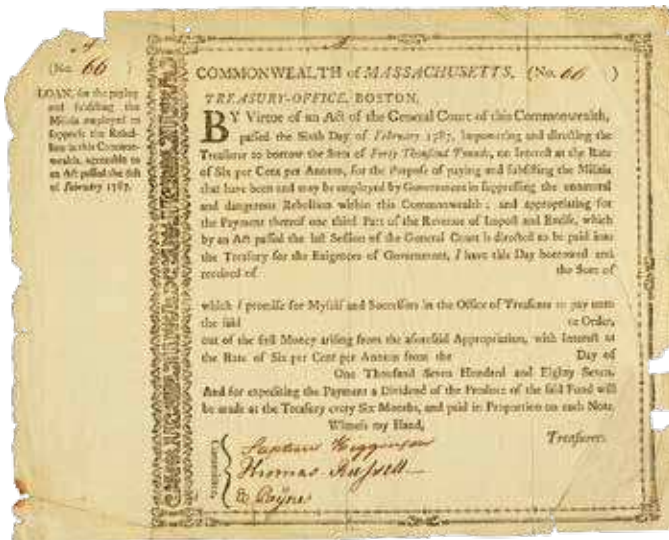 (No. 66 )
LOAN, for the paying
and subsisting the
Militia employed to
suppress the Rebel-
lion in this Common-
wealth, agreeable to
an Act passed the 6th
of February 1787.
COMMONWEALTH of MASSACHUSETTS, (No. 66 )
TREASURY-OFFICE, BOSTON,
BY Virtue of an Act of the General Court of this Commonwealth,
passed the Sixth Day of February 1787, impowering and directing the
Treasurer to borrow the Sum of Forty Thousand Pounds, on Interest at the Rate
of Six per Cent per Annum, for the Purpose of paying and subsisting the Militia
that have been and may be employed by Government in suppressing the unnatural
and dangerous Rebellion within this Commonwealth; and appropriating for
the Payment thereof one third Part of the Revenue of Impost and Excise, which
by an Act passed the last Session of the General Court is directed to be paid into
the Treasury for the Exigences of Government, I have this Day borrowed and
received of the Sum of
which I promise for Myself and Successors in the Office of Treasurer to pay unto
the said or Order,
out of the first Money arising from the aforesaid Appropriation, with Interest at
the Rate of Six per Cent per Annum from the Day of
One Thousand Seven Hundred and Eighty Seven.
And for expediting the Payment a Dividend of the Produce of the said Fund will
be made at the Treasury every Six Months, and paid in Proportion on each Note.
Witness my Hand,
Treasurer.
Higginson
Thomas Russell
Payne